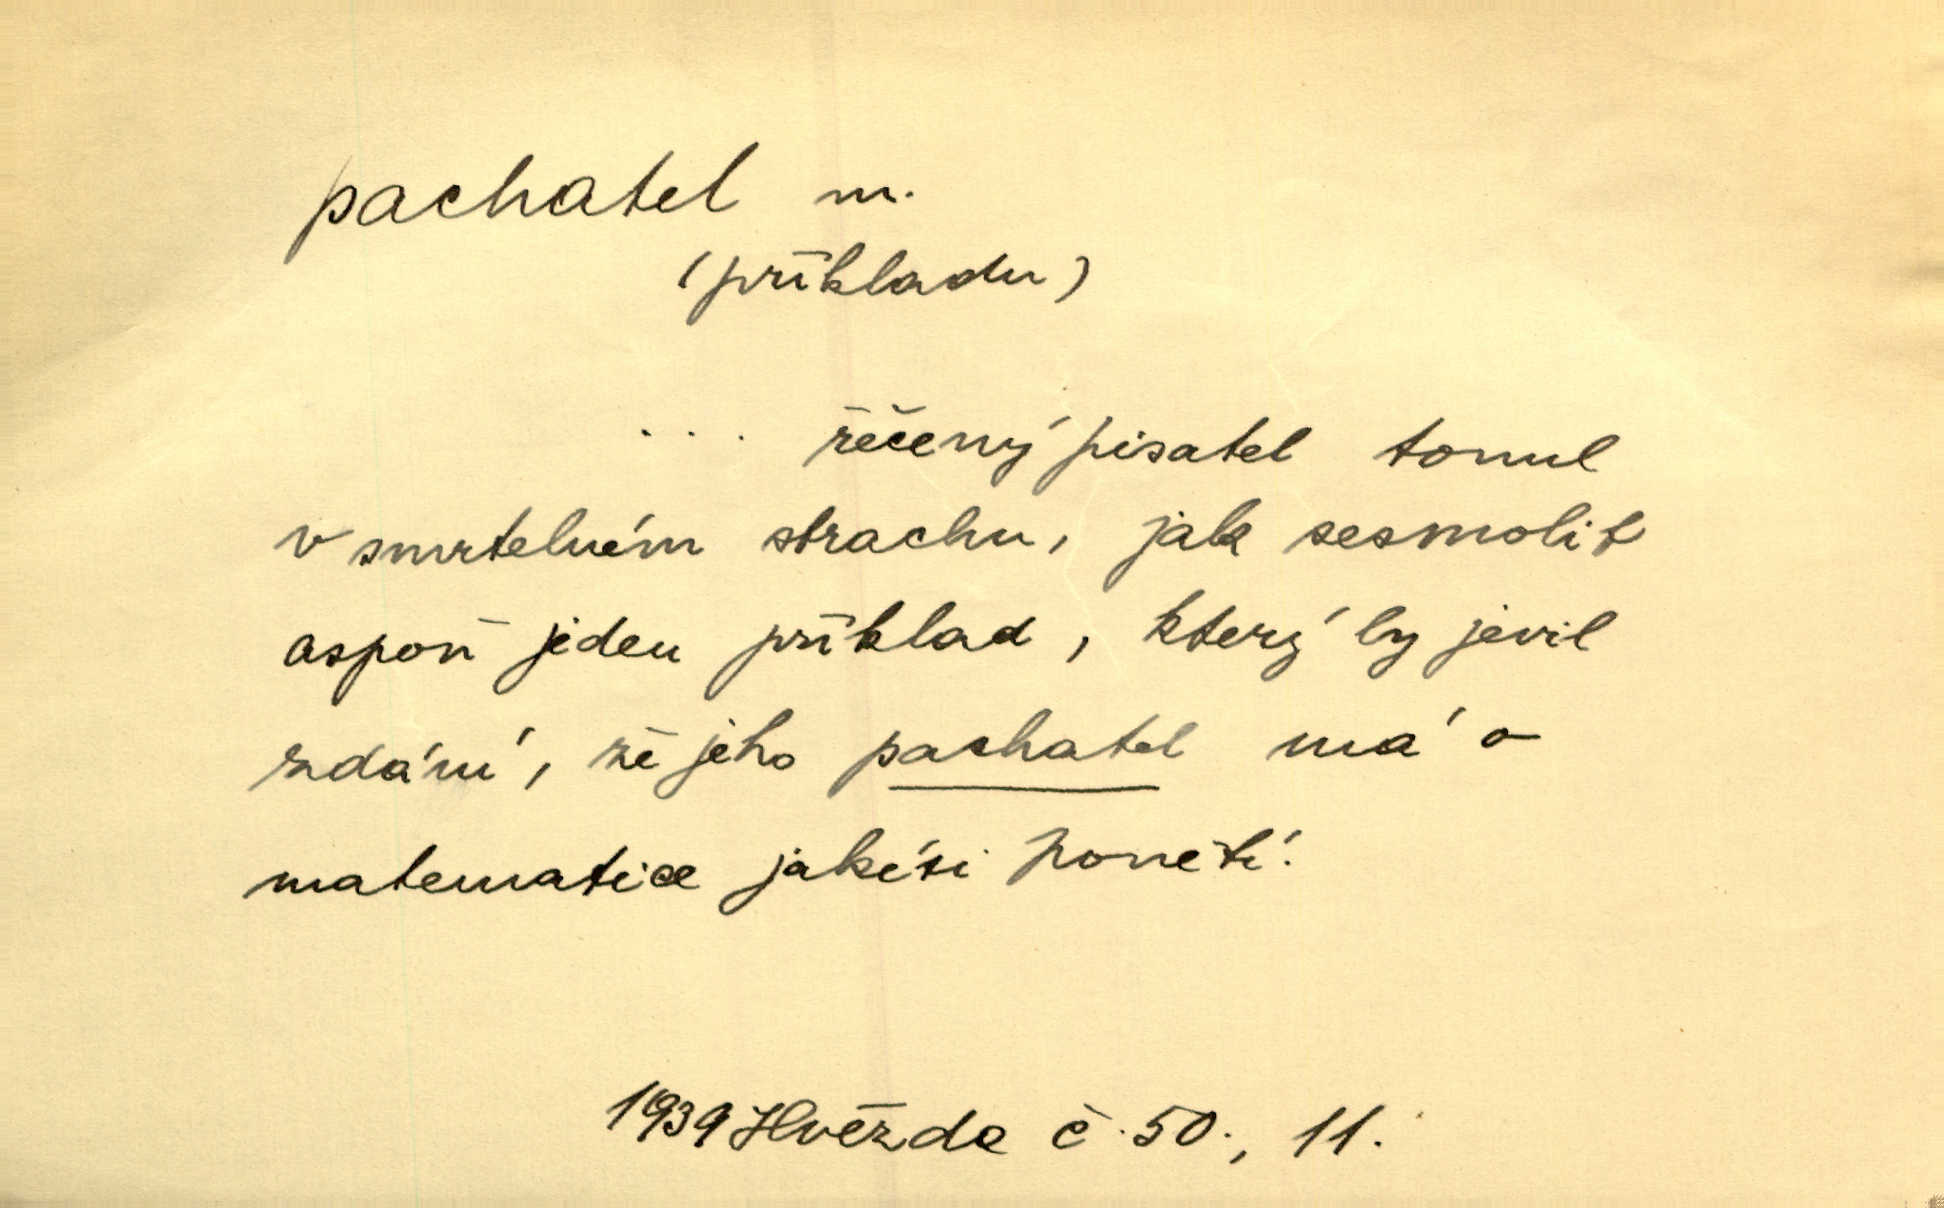 pachatel m.
(příkladu)
... řečený pisatel tonul
v smrtelném strachu, jak sesmolit
aspoň jeden příklad, který by jevil
zdání, že jeho pachatel má o
matematice jakési ponětí.
1939 Hvězda č. 50., 11.